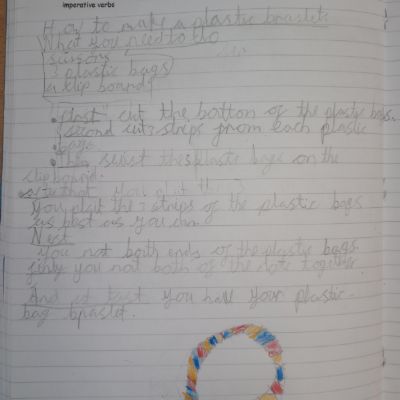 imperative verbs
How to make a plastic braslets
What you need to do
sissors
3 plastic bags
a clip bound
"First" cut the bottom of the plastic bags.
Second cut 3 strips from each plastic
bags.
Then the plastic bages on the
clip bound.
After that you
You plat the 3 strips of the plastic bags
as best as you can.
Next
You not both ends of the plastic bags.
you not both of the together
And at last you have your plastic
bag braslet.